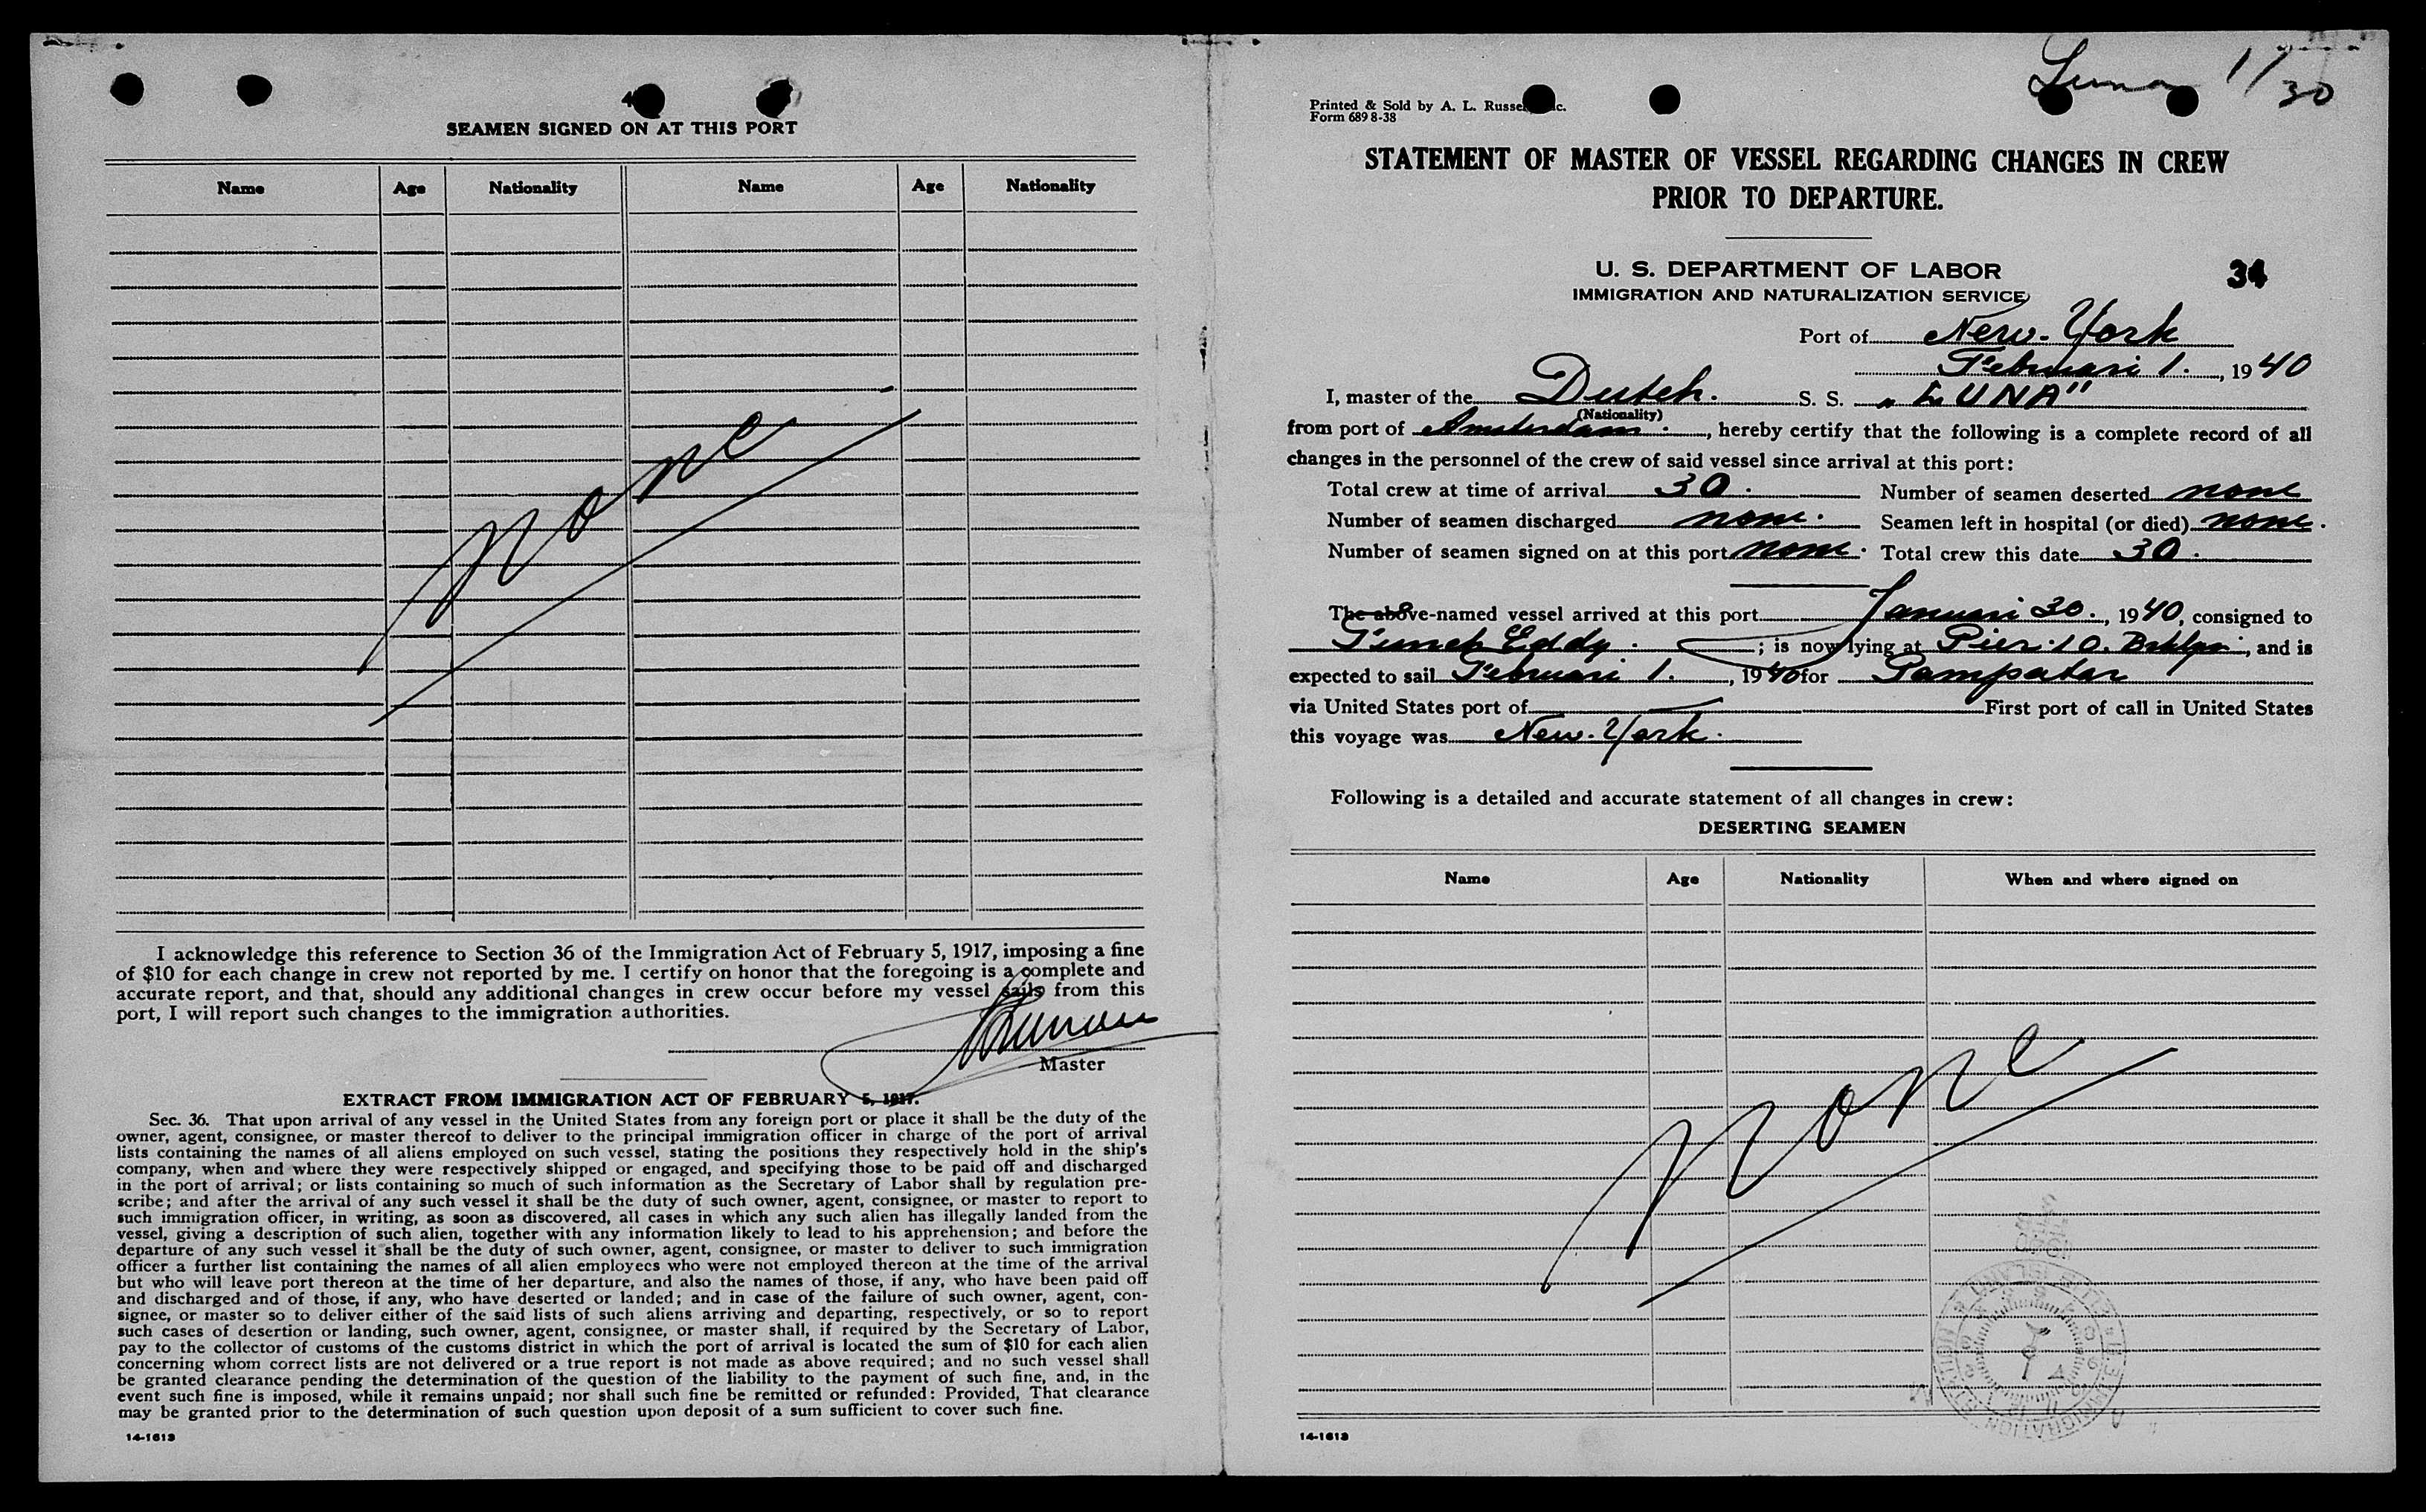 SEAMEN SIGNED ON AT THIS PORT
Name Age Nationality Name Age Nationality
None
I acknowledge this reference to Section 36 of the Immigration Act of February 5, 1917, imposing a fine
of $10 for each change in crew not reported by me. I certify on honor that the foregoing is a complete and
accurate report, and that, should any additional changes in crew occur before my vessel sails from this
port, I will report such changes to the immigration authorities.
Master
EXTRACT FROM IMMIGRATION ACT OF FEBRUARY 5, 1917.
Sec. 36. That upon arrival of any vessel in the United States from any foreign port or place it shall be the duty of the
owner, agent, consignee, or master thereof to deliver to the principal immigration officer in charge of the port of arrival
lists containing the names of all aliens employed on such vessel, stating the positions they respectively hold in the ship's
company, when and where they were respectively shipped or engaged, and specifying those to be paid off and discharged
in the port of arrival; or lists containing so much of such information as the Secretary of Labor shall by regulation pre-
scribe; and after the arrival of any such vessel it shall be the duty of such owner, agent, consignee, or master to report to
such immigration officer, in writing, as soon as discovered, all cases in which any such alien has illegally landed from the
vessel, giving a description of such alien, together with any information likely to lead to his apprehension; and before the
departure of any such vessel it shall be the duty of such owner, agent, consignee, or master to deliver to such immigration
officer a further list containing the names of all alien employees who were not employed thereon at the time of the arrival
but who will leave port thereon at the time of her departure, and also the names of those, if any, who have been paid off
and discharged and of those, if any, who have deserted or landed; and in case of the failure of such owner, agent, con-
signee, or master so to deliver either of the said lists of such aliens arriving and departing, respectively, or so to report
such cases of desertion or landing, such owner, agent, consignee, or master shall, if required by the Secretary of Labor,
pay to the collector of customs of the customs district in which the port of arrival is located the sum of $10 for each alien
concerning whom correct lists are not delivered or a true report is not made as above required; and no such vessel shall
be granted clearance pending the determination of the question of the liability to the payment of such fine, and, in the
event such fine is imposed, while it remains unpaid; nor shall such fine be remitted or refunded: Provided, That clearance
may be granted prior to the determination of such question upon deposit of a sum sufficient to cover such fine.
14-1613
Luna 1/30
Printed & Sold by A. L. Russell, Inc.
Form 689 8-38
STATEMENT OF MASTER OF VESSEL REGARDING CHANGES IN CREW
PRIOR TO DEPARTURE.
U. S. DEPARTMENT OF LABOR
34
IMMIGRATION AND NATURALIZATION SERVICE
Port of New-York
Februari 1., 1940
I, master of the Dutch. S. S. "LUNA"
(Nationality)
from port of Amsterdam., hereby certify that the following is a complete record of all
changes in the personnel of the crew of said vessel since arrival at this port:
Total crew at time of arrival 30. Number of seamen deserted none
Number of seamen discharged none. Seamen left in hospital (or died) none.
Number of seamen signed on at this port none. Total crew this date 30.
The above-named vessel arrived at this port Januari 30., 1940, consigned to
Funch Eddy.; is now lying at Pier 10. Bklyn, and is
expected to sail Februari 1., 1940 for Pampatar
via United States port of First port of call in United States
this voyage was New-York.
Following is a detailed and accurate statement of all changes in crew:
DESERTING SEAMEN
Name Age Nationality When and where signed on
None
14-1613